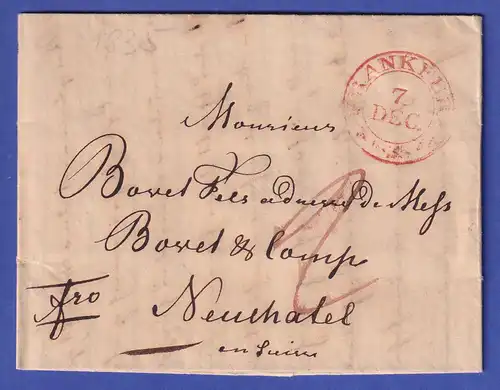 1835
FRANKFURT
7
DEC.
Monsieur
Bovet Fils adresse de Mess
Bovet & Comp
fro
Neuchatel
en Suisse